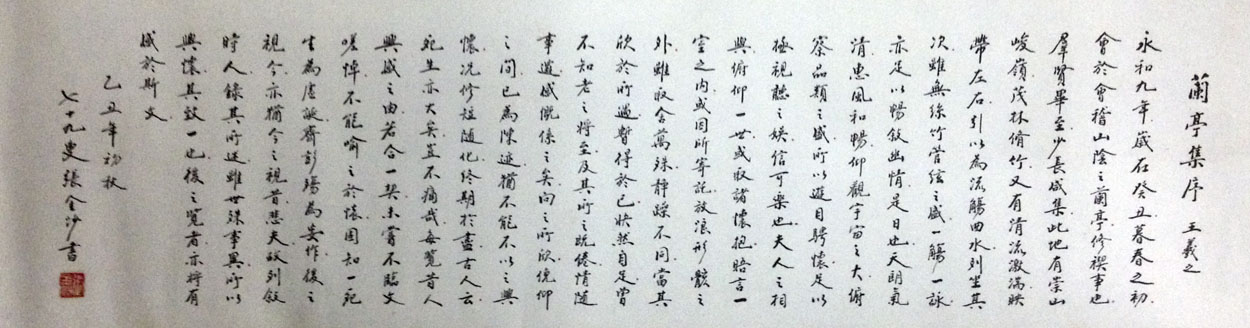 蘭亭集序 王羲之
永和九年歲在癸丑暮春之初
會於會稽山陰之蘭亭修禊事也
羣賢畢至少長咸集此地有崇山
峻嶺茂林脩竹又有清流激湍映
帶左右引以為流觴曲水列坐其
次雖無絲竹管絃之盛一觴一詠
亦足以暢敘幽情是日也天朗氣
清惠風和暢仰觀宇宙之大俯
察品類之盛所以遊目騁懷足以
極視聽之娛信可樂也夫人之相
與俯仰一世或取諸懷抱晤言一
室之內或因所寄託放浪形骸之
外雖取舍萬殊靜躁不同當其
欣於所遇暫得於己快然自足曾
不知老之將至及其所之既倦情隨
事遷感慨係之矣向之所欣俛仰
之間已為陳迹猶不能不以之興
懷況修短隨化終期於盡古人云
死生亦大矣豈不痛哉每覽昔人
興感之由若合一契未嘗不臨文
嗟悼不能喻之於懷固知一死
生為虛誕齊彭殤為妄作後之
視今亦猶今之視昔悲夫故列敘
時人錄其所述雖世殊事異所以
興懷其致一也後之覽者亦將有
感於斯文
乙丑年初秋
七十九叟張金沙書